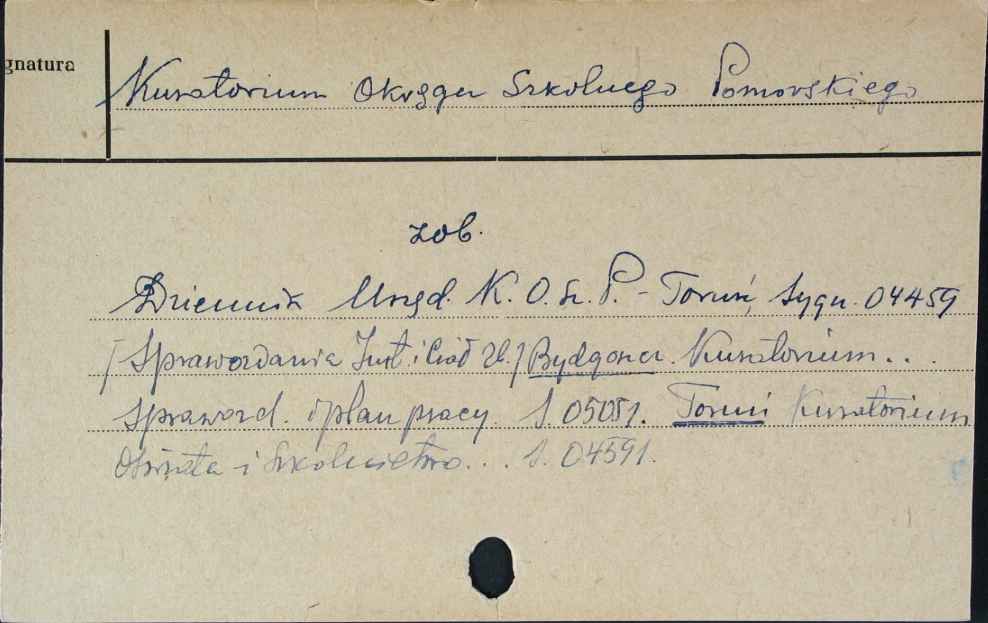 gnatura
Kuratorium Okręgu Szkolnego Pomorskiego
zob.
Dziennik Urzęd. K. O. Sz. P. - Toruń, Sygn. 04459
[Sprawozdania Inst. i Ciał Zb.] Bydgoszcz. Kuratorium...
Sprawozd. i plan pracy. S. 05051. Toruń Kuratorium
Oświata i Szkolnictwo... S. 04591.